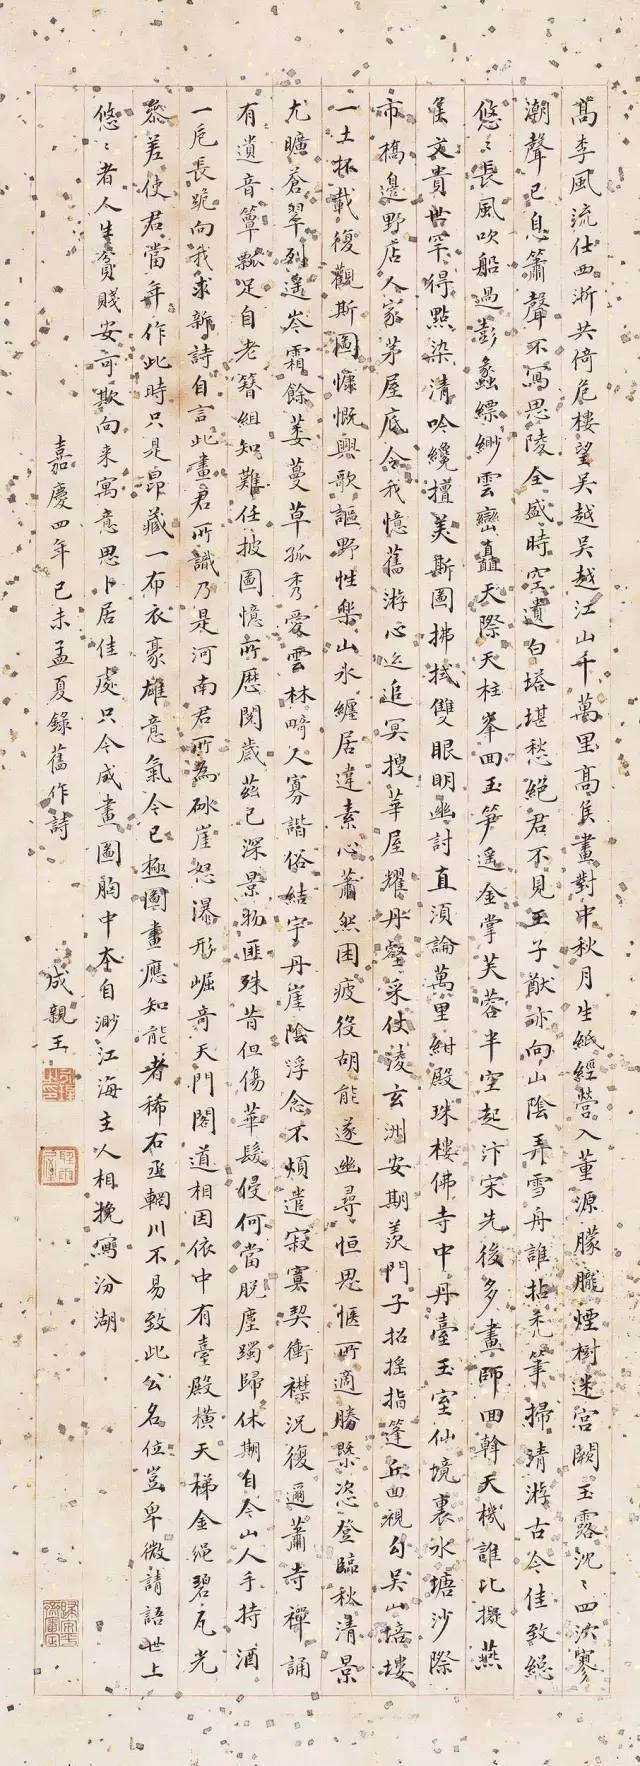 高李風流仕西浙共倚危樓望吳越吳越江山千萬里高侯畫對中秋月生紙經營入董源朦朧煙樹迷宮闕玉露沈〻四泬寥
潮聲已息簫聲不寫思陵全盛時空遺白塔堪愁絕君不見王子猷亦向山陰弄雪舟誰拈禿筆掃清游古今佳致緫
悠〻長風吹船過彭蠡縹緲雲巒矗天際天柱峯回玉笋遙金掌芙蓉半空起汴宋先後多畫師回斡天機誰比擬燕
侯文貴世罕得點染清吟纔擅美斯圖拂拭雙眼明幽討直須論萬里紺殿珠樓佛寺中丹臺玉室仙境裏水塘沙際
市橋邊野店人家茅屋底令我憶舊游心迄追冥搜華屋耀丹壑采仗淩玄洲安期羨門子招搖指蓬丘回視勾吳山培塿
一土抔載復觀斯圖慷慨興歌謳野性樂山水纏居違素心蕭然困疲役胡能遂幽尋恒思愜所適勝槩恣登臨秋清景
尤曠蒼翠列遙岑霜餘萎蔓草孤秀愛雲林畸人寡諧俗結宇丹崖陰浮念不煩遣寂寞契衝襟況復邇蕭寺禪誦
有遺音簞瓢足自老簪組知難任披圖憶所歷閱歲茲已深景物匪殊昔但傷華髮侵何當脫塵躅歸休期自今山人手持酒
一卮長跪向我求新詩自言此畫君所識乃是河南君所為砅崖怒瀑形崛奇天門閣道相因依中有臺殿橫天梯金繩碧瓦光
參差使君當年作此時只是昂藏一布衣豪雄意氣今已極圖畫應知能者稀右丞輞川不易致此公名位豈卑微請語世上
悠〻者人生貧賤安可欺向来寓意思卜居佳處只今咸畫圖胸中本自渺江海主人相挽寫汾湖
嘉慶四年己未孟夏錄舊作詩 成親王